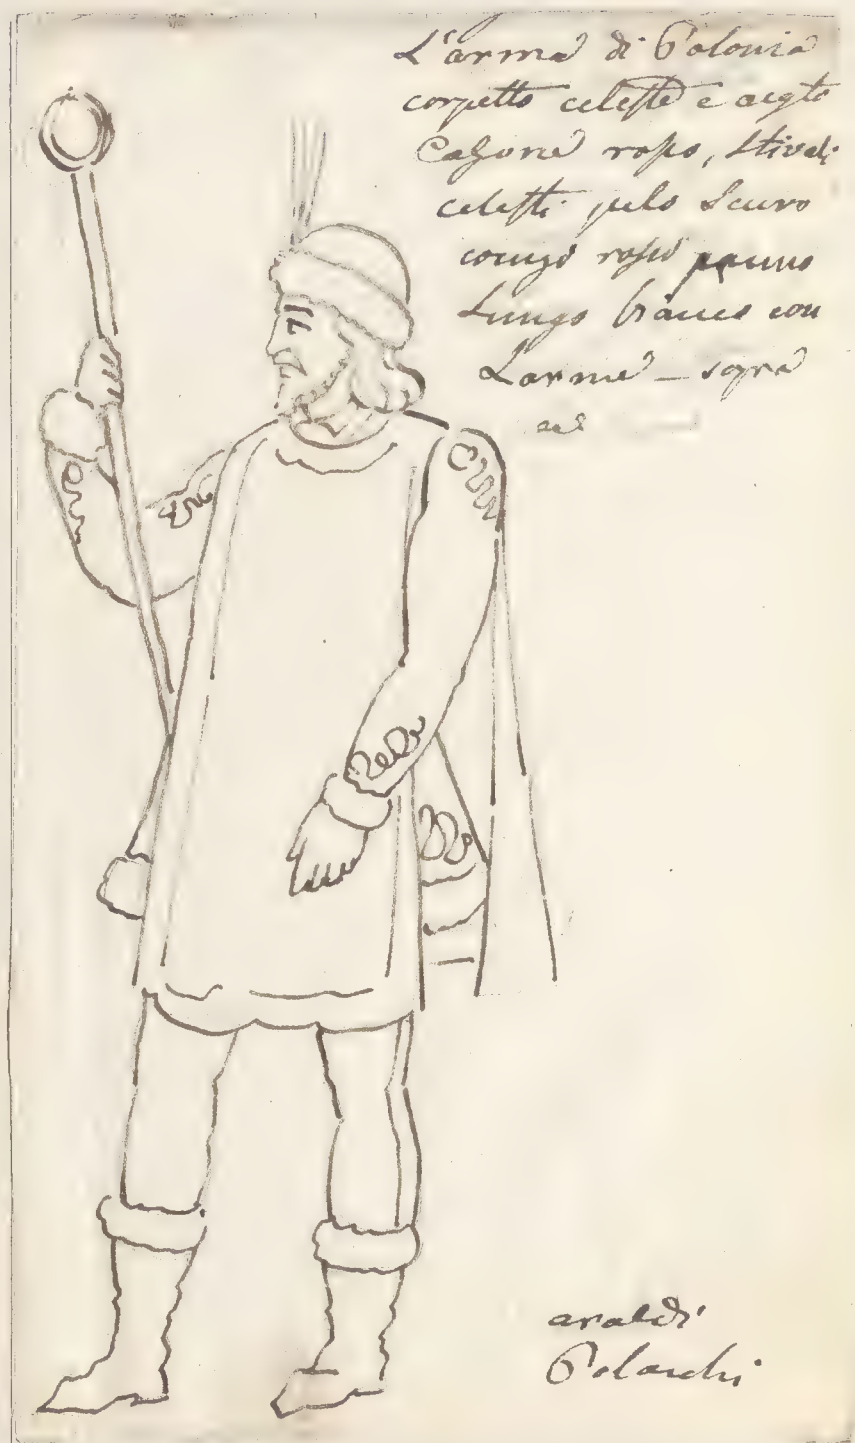 L'arma di Polonia
corpetto celeste e
Calzone rosso, stivali
celesti pelo scuro
rosso panno
Lungo bianco con
L'arme – sopra
araldi
Polacchi